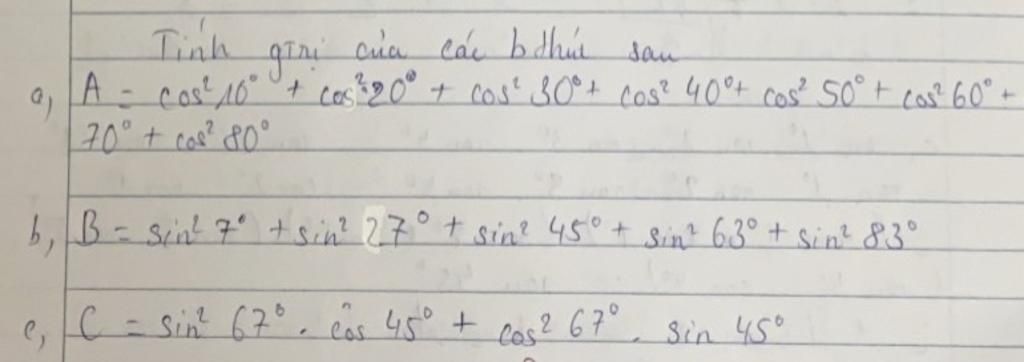 Tính gtrị của các bthức sau
a, A = cos² 10° + cos² 20° + cos² 30° + cos² 40° + cos² 50° + cos² 60° +
70° + cos² 80°
b, B = sin² 7° + sin² 27° + sin² 45° + sin² 63° + sin² 83°
c, C = sin² 67° . cos 45° + cos² 67° . sin 45°